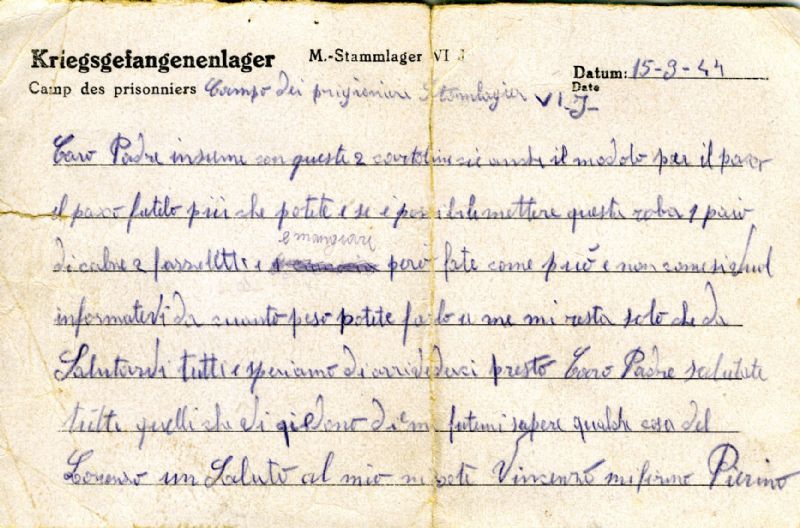 Kriegsgefangenenlager M.-Stammlager VI J
Datum: 15-3-44
Date
Camp des prisonniers Campo dei prigioniere Stamlagier VI-J-
Caro Padre insieme con queste 2 cartoline cié anche il modolo per il paxo
il paxo fatelo più che potite e se è possibile mettere questa roba 1 paio
e mangiare
di calze 2 fazzoletti e però fate come può e non come si vuol
informatevi da quanto peso potete farlo a me mi resta solo che da
Salutarvi tutti e speriamo di arrivederci presto Caro Padre salutate
tutti quelli che vi di me fatemi sapere qualche cosa del
Lorenso un Saluto al mio nipote Vincenzo mi firmo Pierino